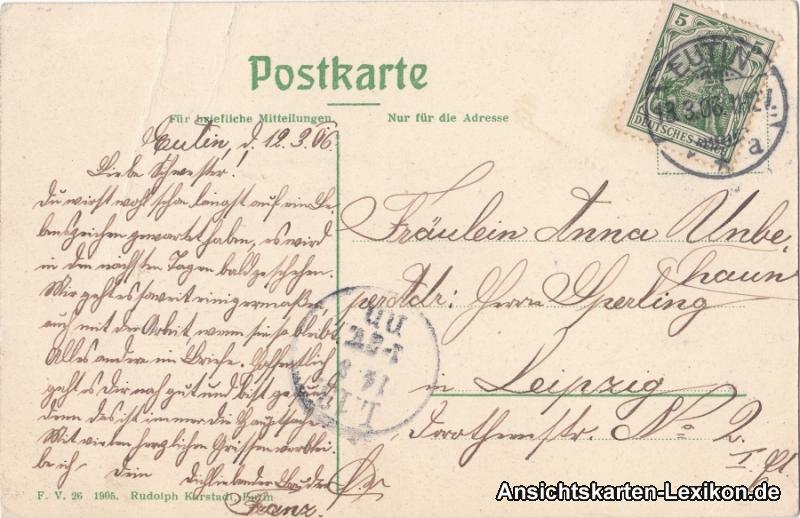 Postkarte
Für briefliche Mitteilungen. Nur für die Adresse
5 5
DEUTSCHES REICH
EUTIN
13.3.06.
a
Eutin, d. 12.3.06.
Liebe Schwester!
Du wirst wohl schon längst auf ein Le-
benszeichen gewartet haben, es wird
in den nächsten Tagen bald geschehen.
Mir geht es soweit einigermaße,
auch mit der Arbeit, wenn sie so bleibt.
Alles andere im Briefe. Hoffentlich
geht es Dir noch gut und bist gesund
denn das ist immer die Hauptsache.
Mit vielen herzlichen Grüssen verblei-
be ich Dein Dich liebender Bruder
Franz.
Fräulein Anna Unbe
haun
per Adr: Herrn Sperling
in Leipzig
Dorotheenstr. No 2.
I.
14 3
F. V. 26 1905. Rudolph Karstadt, Eutin
Ansichtskarten-Lexikon.de